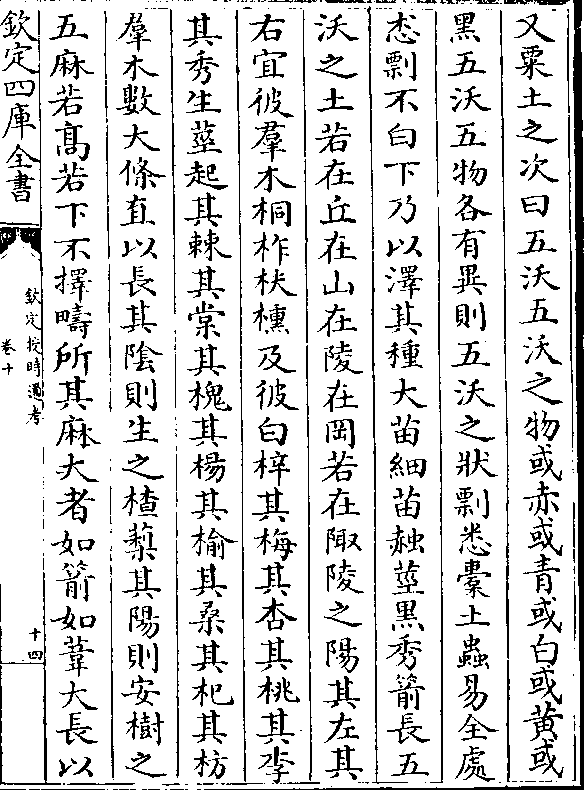 又粟土之次曰五沃五沃之物或赤或青或白或黄或
黑五沃五物各有異則五沃之狀剽怸橐土蟲易全處
怸剽不白下乃以澤其種大苗細苗赨莖黑秀箭長五
沃之土若在丘在山在陵在岡若在陬陵之陽其左其
右宜彼羣木桐柞枎櫄及彼白梓其梅其杏其桃其李
其秀生莖起其棘其棠其槐其楊其榆其桑其杞其枋
羣木數大條直以長其陰則生之楂蔾其陽則安樹之
五麻若髙若下不擇疇所其麻大者如箭如葦大長以
欽定四庫全書
欽定授時通考
卷十
十四